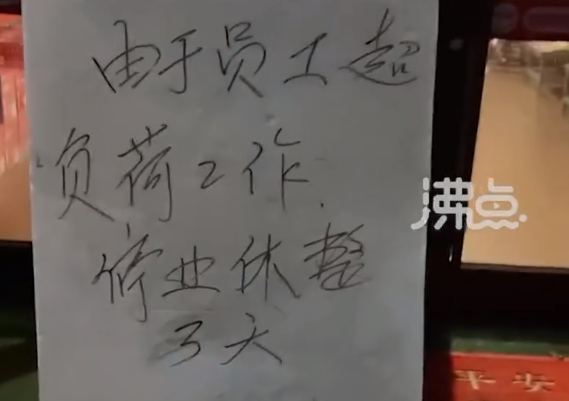 由于员工超
负荷工作.
停业休整
3天
沸点
平安